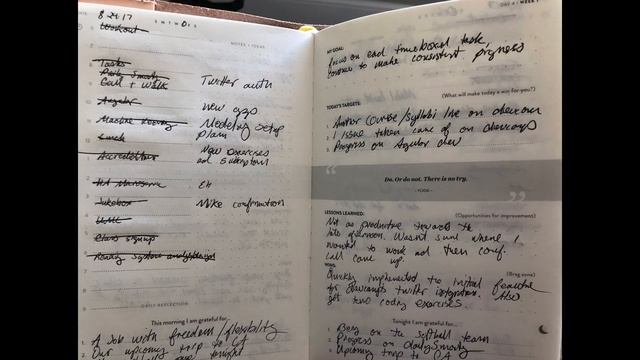 8 21 17
S M T W T F S
Workout
NOTES + IDEAS
Tasks
Daily Smarty
Call + Walk
Twitter auth
Angular
new app
Machine Learning
Modeling setup
plan
Lunch
Accreditation
New Exercises
and
Eh
Jukebox
Mike confirmation
UML
Class signup
Reading System analysis
DAILY REFLECTION
This morning I am grateful for...
1. A Job with freedom/flexibility
2. Our upcoming trip to CA
DAY 4 / WEEK 1
MY GOAL:
Focus on each timeboxed task,
continue to make consistent progress
TODAY'S TARGETS:
(What will make today a win for you?)
1. Author Course/Syllabi live on devcamp
2. 1 issue taken care of on devcamp
3. Progress on Angular
Do. Or do not. There is no try.
- YODA -
LESSONS LEARNED:
(Opportunities for improvement)
Not as productive towards the
late afternoon. Wasn't sure where I
wanted to work and then conf.
call came up.
WINS:
(Brag zone)
Quickly implemented the initial feature
for devcamp twitter integration. Also
got two coding exercises.
Tonight I am grateful for...
1. Being on the softball team
2. Progress on dailySmarty
3. Upcoming trip to CA